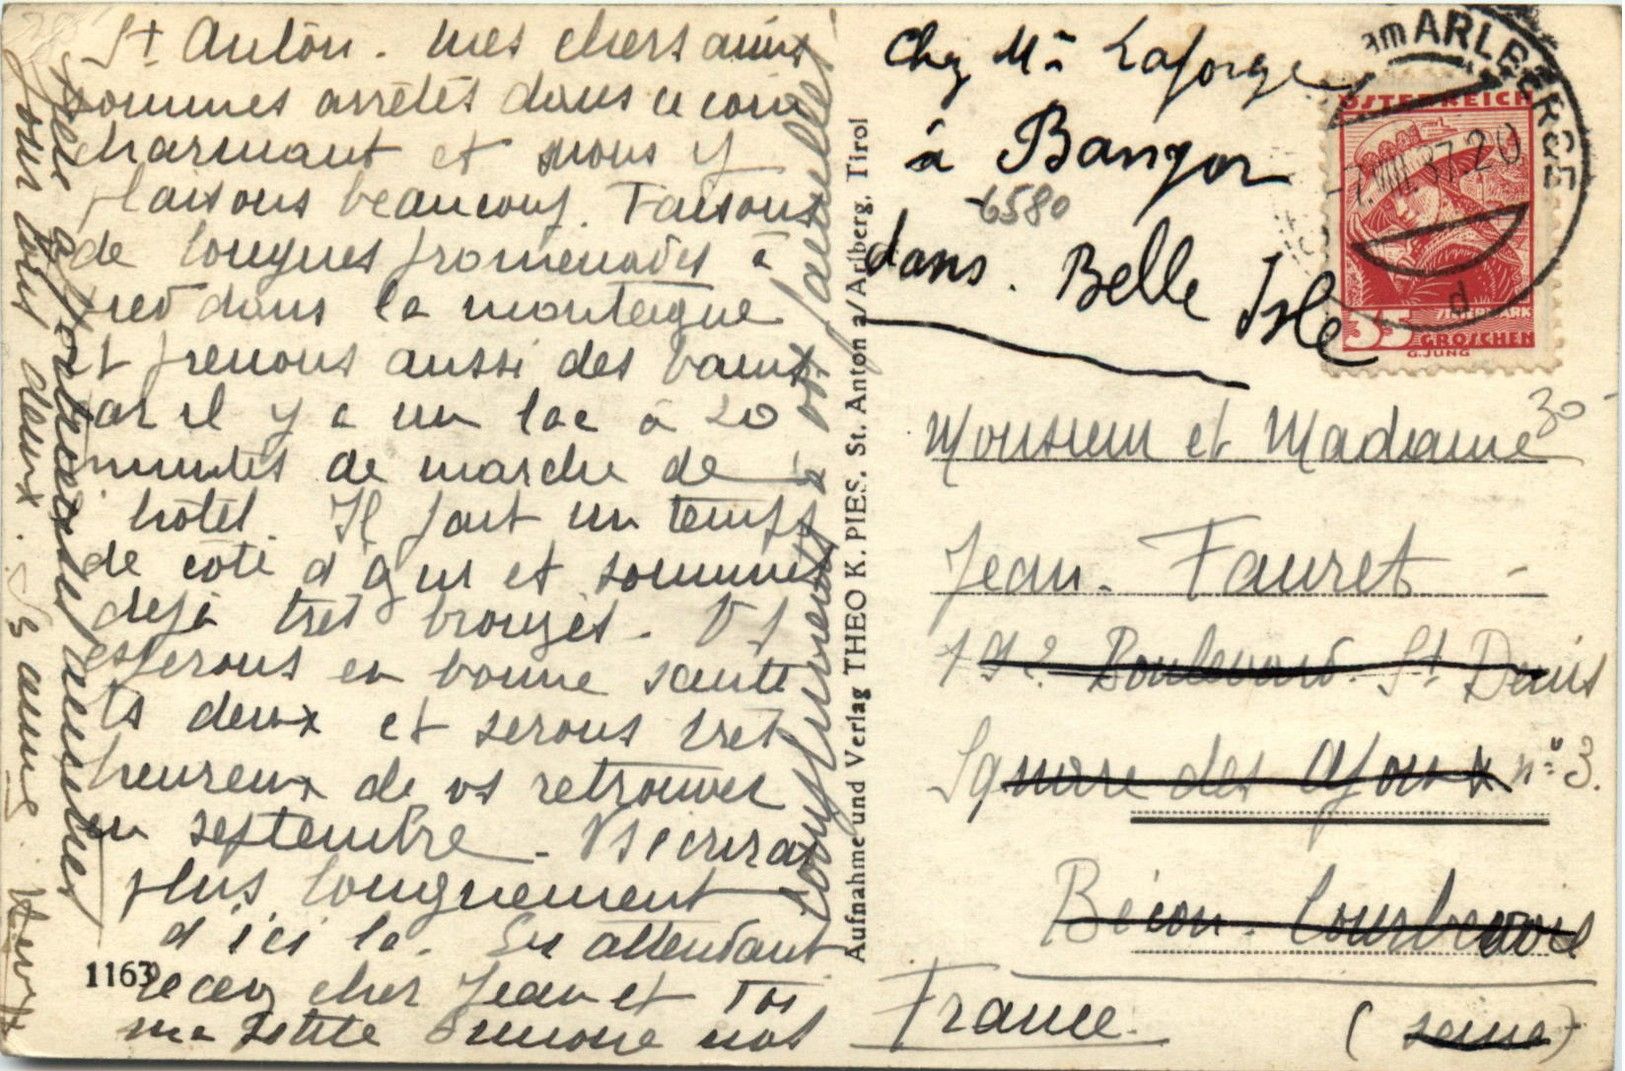 St Anton. Mes chers amis
sommes arrêtés dans ce coin
charmant et nous y
plaisons beaucoup. Faisons
de longues promenades à
pied dans la montagne
et prenons aussi des bains
car il y a un lac à 20
minutes de marche de
hôtel. Il fait un temps
de côte d'Azur et sommes
déjà très bronzés. Vs
espérons en bonne santé
ts deux et serons très
heureux de vs retrouver
en septembre. Vs écrirai
plus longuement
d'ici là. En attendant
recevez cher Jean et Toi
ma petite Simone nos
pour vous deux. Vs aime
Aufnahme und Verlag THEO K. PIES. St. Anton a/Arlberg, Tirol
1163
Chez Mr Laforge
à Bangor
6580
dans. Belle Isle
Monsieur et Madame
30
Jean. Fauret
192 Boulevard St Denis
Square des Ajoux n° 3.
Bécon. Courbevoie
France. (Seine)
am ARLBERG
7.VIII.37.20
d
ÖSTERREICH
STEIERMARK
35 GROSCHEN
G. JUNG